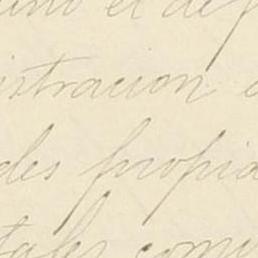 el de
istracion
des propia
tales como